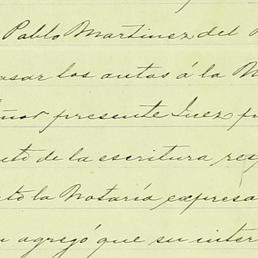 Pablo Martinez del
pasar los autos á la N
señor presente Juez p
to de la escritura res
to la Notaría expresa
agregó que su inter